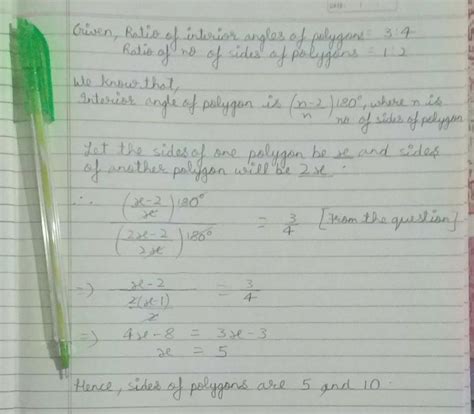 DATE:
Given, Ratio of interior angles of polygons = 3:4
Ratio of no of sides of polygons = 1:2
We know that,
Interior angle of polygon is (n-2/n)180°, where n is
no of sides of polygon
Let the sides of one polygon be x and sides
of another polygon will be 2x.
∴ (x-2/x)180° / (2x-2/2x)180° = 3/4 [From the question]
=> x-2 / (2(x-1)/2) = 3/4
=> 4x-8 = 3x-3
x = 5
Hence, sides of polygons are 5 and 10.